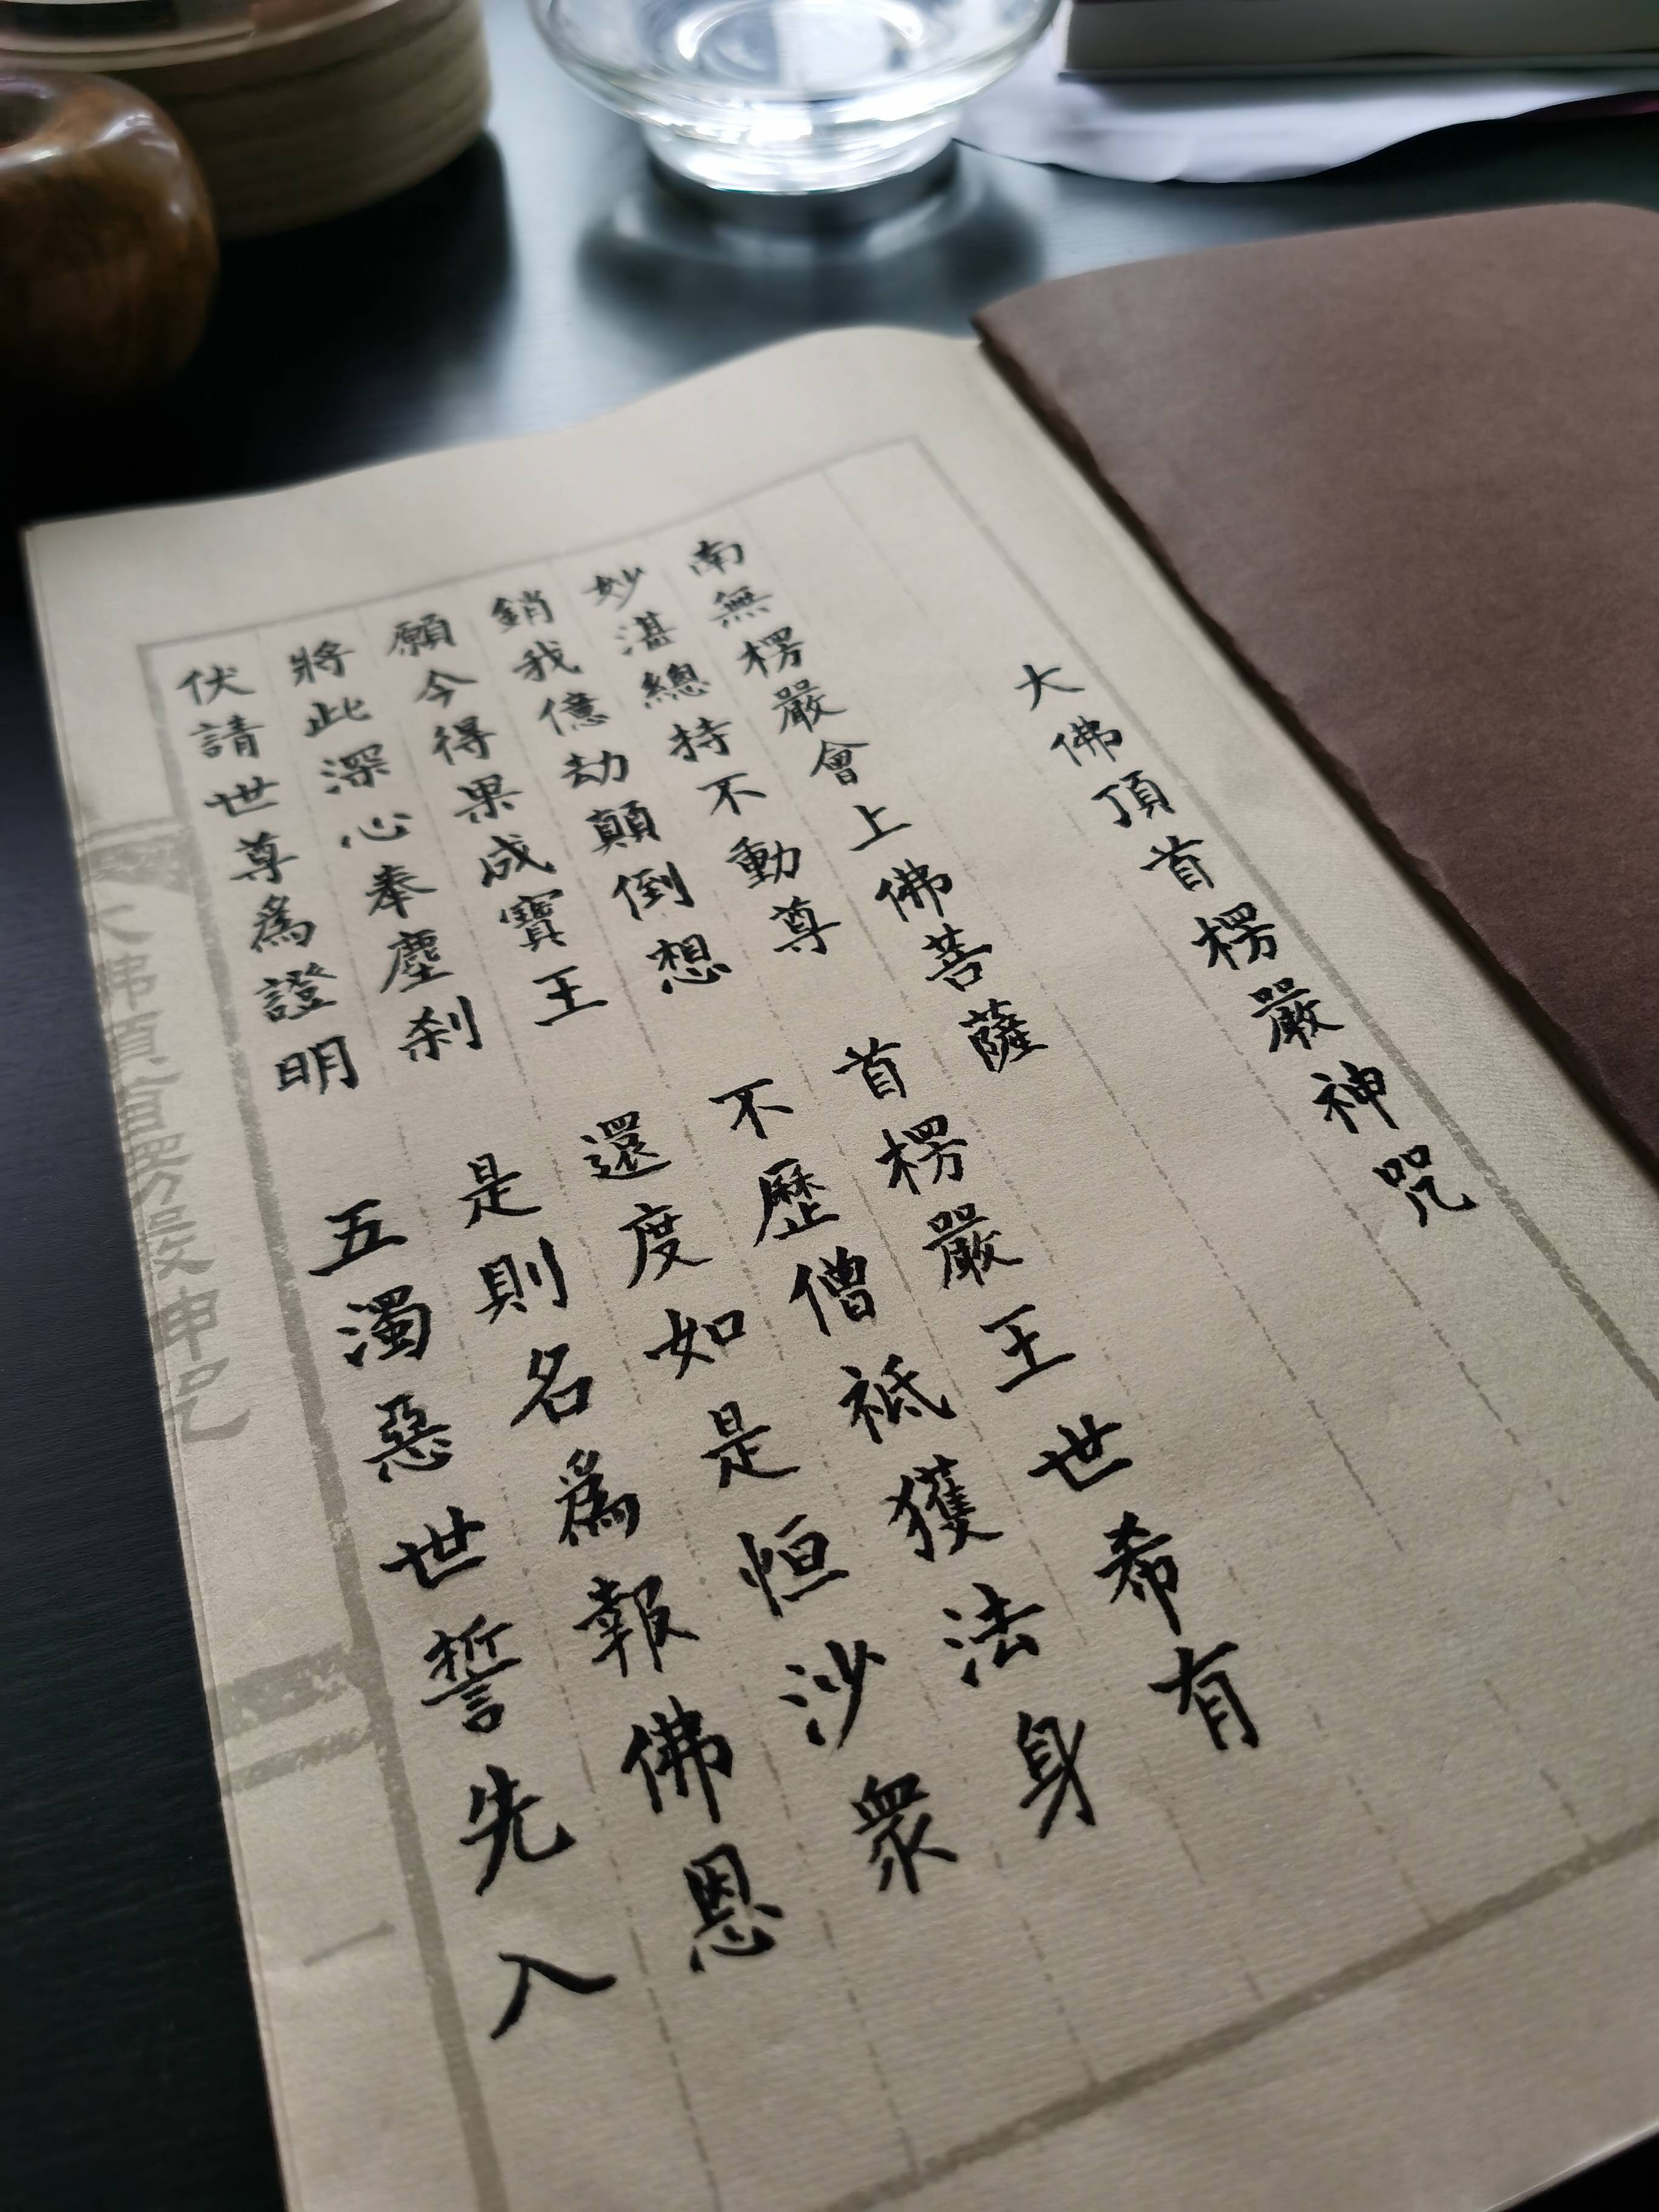 大佛頂首楞嚴神咒
南無楞嚴會上佛菩薩
妙湛總持不動尊 首楞嚴王世希有
銷我億劫顛倒想 不歷僧祇獲法身
願今得果成寶王 還度如是恒沙眾
將此深心奉塵剎 是則名為報佛恩
伏請世尊為證明 五濁惡世誓先入
大佛頂首楞嚴神咒
一